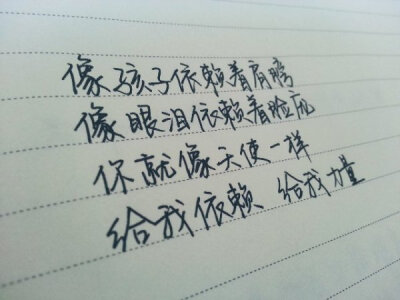 像孩子依赖着肩膀
像眼泪依赖着脸庞
你就像天使一样
给我依赖 给我力量